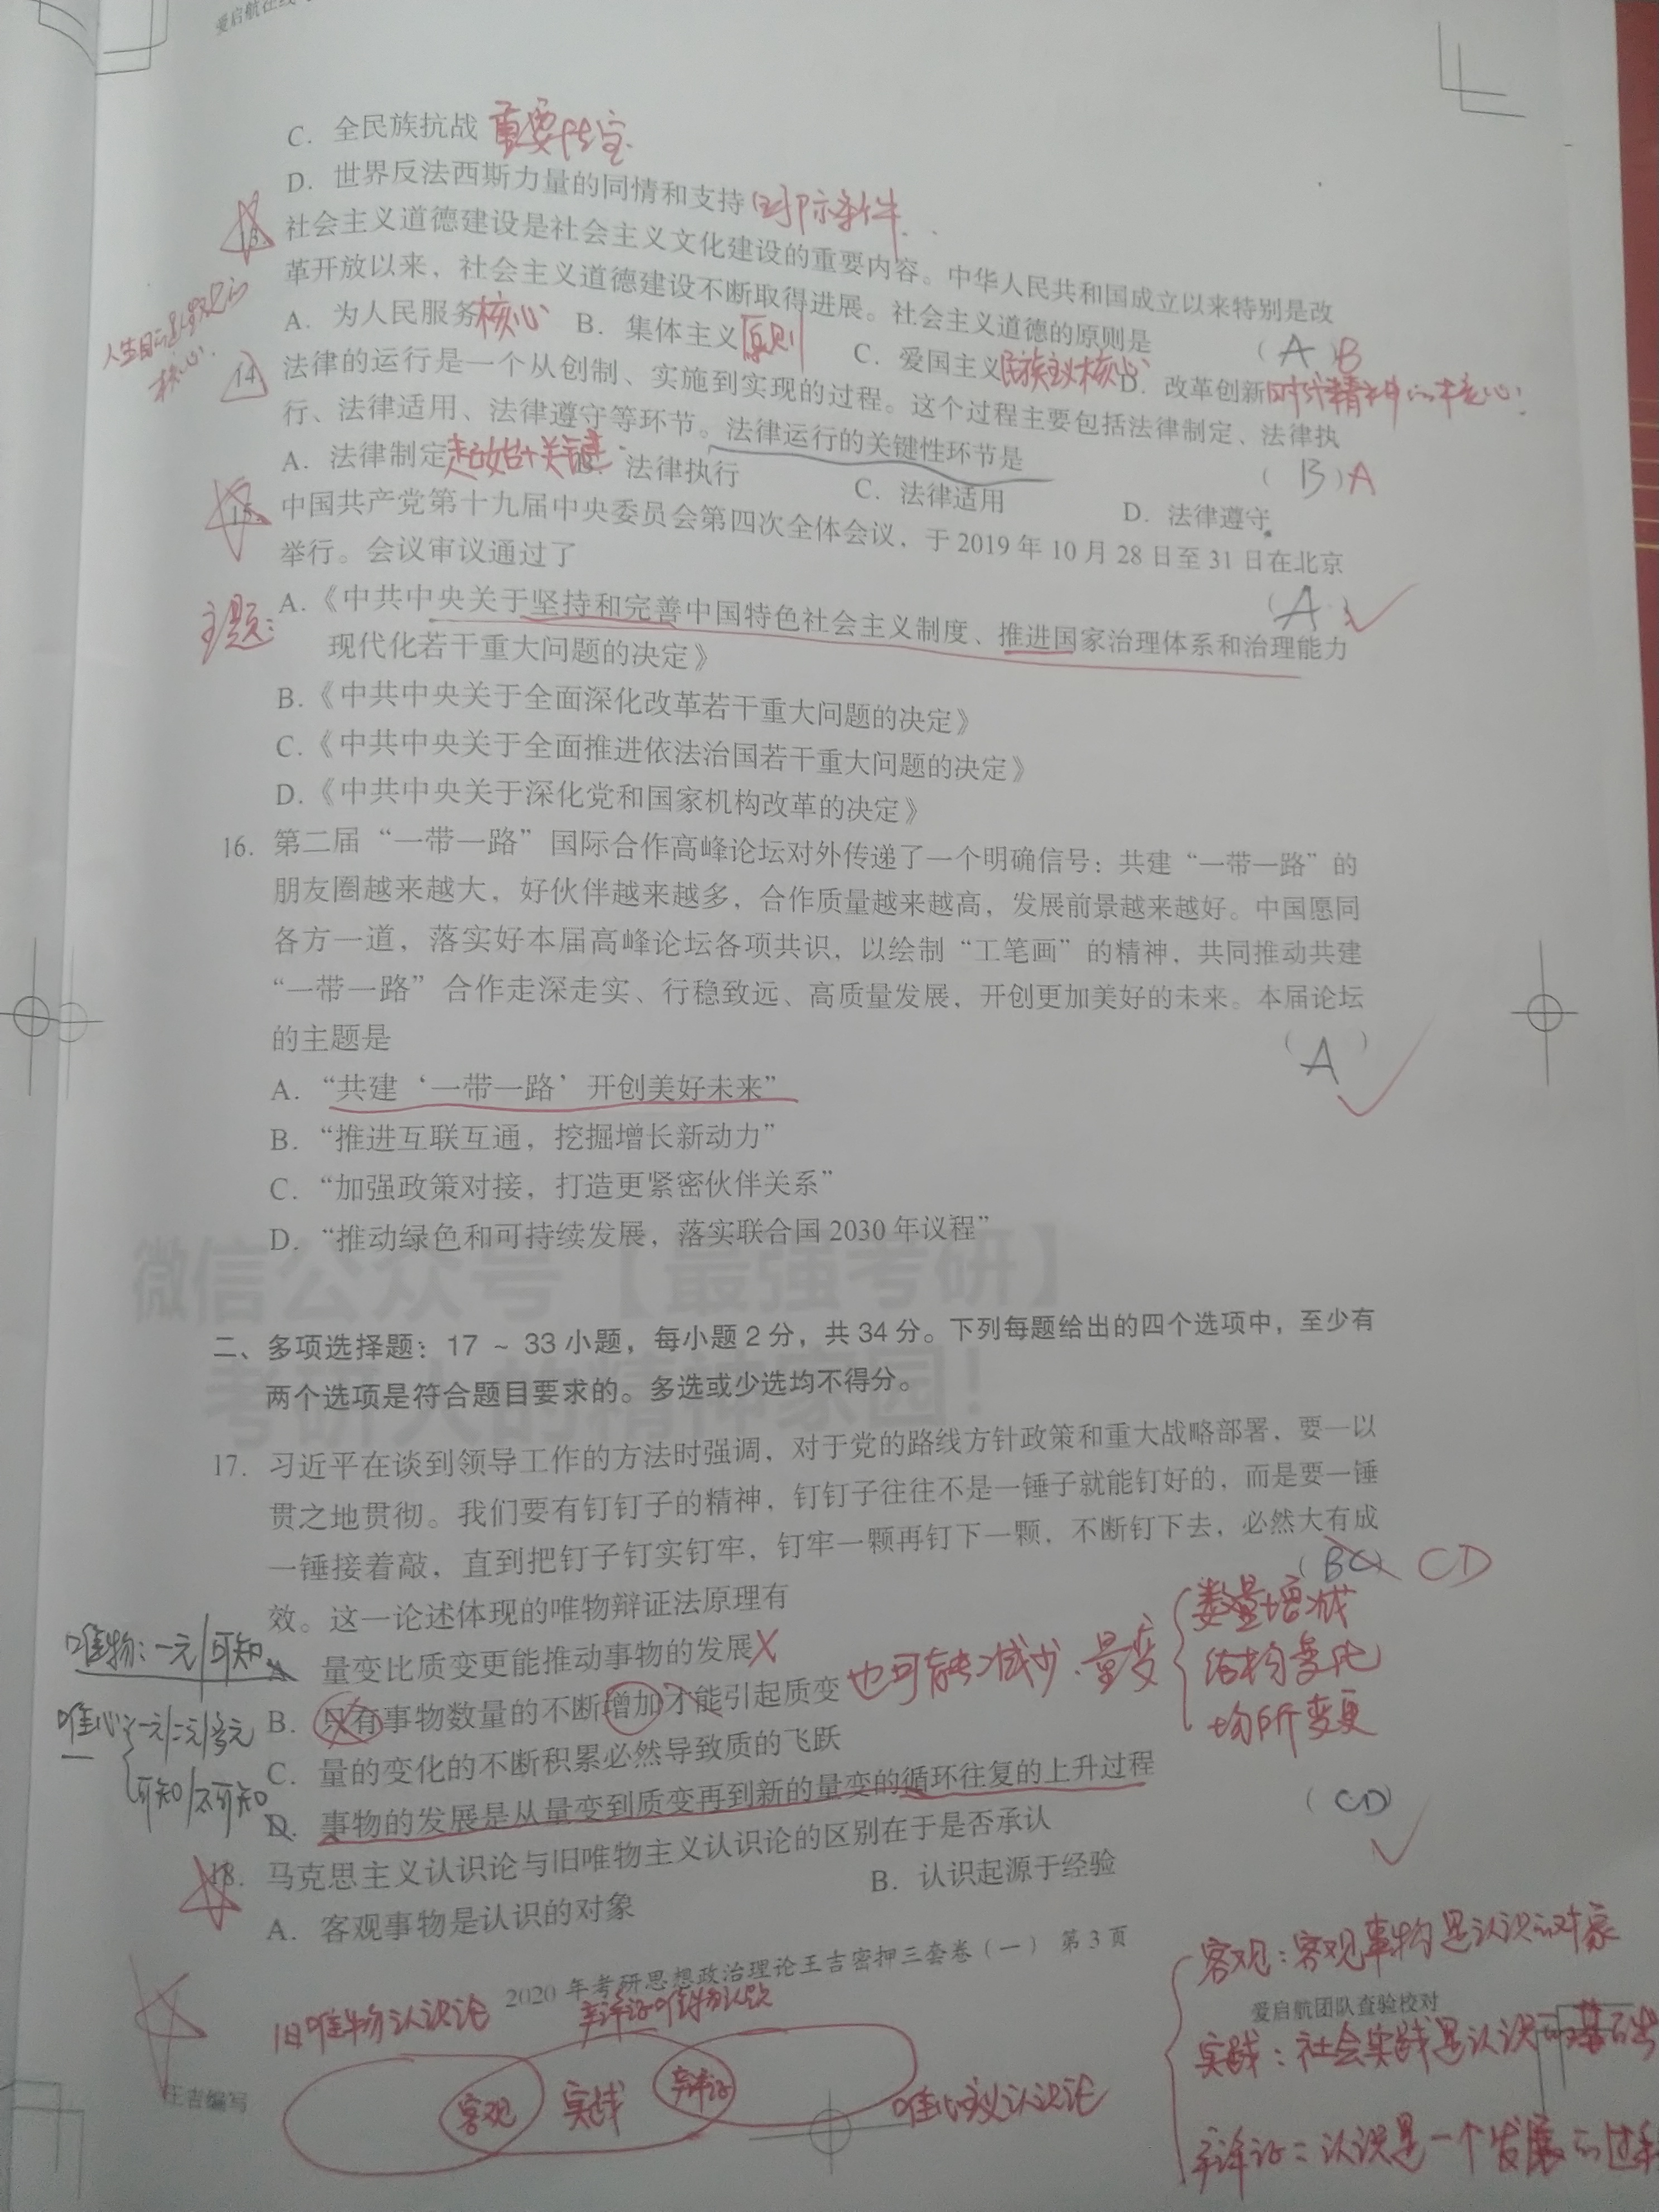 爱启航在线
C. 全民族抗战 重要法宝
D. 世界反法西斯力量的同情和支持 国际条件
13. 社会主义道德建设是社会主义文化建设的重要内容。中华人民共和国成立以来特别是改
革开放以来，社会主义道德建设不断取得进展。社会主义道德的原则是 (A) B
A. 为人民服务 核心 B. 集体主义 原则 C. 爱国主义 民族主义核心 D. 改革创新 时代精神的核心
核心.
14. 法律的运行是一个从创制、实施到实现的过程。这个过程主要包括法律制定、法律执
行、法律适用、法律遵守等环节。法律运行的关键性环节是 (B) A
A. 法律制定 起始+关键 B. 法律执行 C. 法律适用 D. 法律遵守
15. 中国共产党第十九届中央委员会第四次全体会议，于 2019 年 10 月 28 日至 31 日在北京
举行。会议审议通过了 (A)
主题：
A.《中共中央关于坚持和完善中国特色社会主义制度、推进国家治理体系和治理能力
现代化若干重大问题的决定》
B.《中共中央关于全面深化改革若干重大问题的决定》
C.《中共中央关于全面推进依法治国若干重大问题的决定》
D.《中共中央关于深化党和国家机构改革的决定》
16. 第二届“一带一路”国际合作高峰论坛对外传递了一个明确信号：共建“一带一路”的
朋友圈越来越大，好伙伴越来越多，合作质量越来越高，发展前景越来越好。中国愿同
各方一道，落实好本届高峰论坛各项共识，以绘制“工笔画”的精神，共同推动共建
“一带一路”合作走深走实、行稳致远、高质量发展，开创更加美好的未来。本届论坛
的主题是 (A)
A. “共建‘一带一路’开创美好未来”
B. “推进互联互通，挖掘增长新动力”
C. “加强政策对接，打造更紧密伙伴关系”
D. “推动绿色和可持续发展，落实联合国 2030 年议程”
微信公众号【最强考研】
考研人的精神家园！
二、多项选择题：17 ~ 33 小题，每小题 2 分，共 34 分。下列每题给出的四个选项中，至少有
两个选项是符合题目要求的。多选或少选均不得分。
17. 习近平在谈到领导工作的方法时强调，对于党的路线方针政策和重大战略部署，要一以
贯之地贯彻。我们要有钉钉子的精神，钉钉子往往不是一锤子就能钉好的，而是要一锤
一锤接着敲，直到把钉子钉实钉牢，钉牢一颗再钉下一颗，不断钉下去，必然大有成
效。这一论述体现的唯物辩证法原理有 (BC) CD
A. 量变比质变更能推动事物的发展
B. 只有事物数量的不断增加才能引起质变 也可能减少.
量变
数量增减
结构变化
场所变更
C. 量的变化的不断积累必然导致质的飞跃
D. 事物的发展是从量变到质变再到新的量变的循环往复的上升过程
唯物：一元/可知
唯心 一元/二元/多元
可知/不可知
18. 马克思主义认识论与旧唯物主义认识论的区别在于是否承认 (CD)
A. 客观事物是认识的对象 B. 认识起源于经验
2020 年考研思想政治理论王吉密押三套卷（一） 第 3 页
爱启航团队查验校对
王吉编写
旧唯物认识论
辩证唯物认识
客观 实践 辩证
唯心主义认识论
客观：客观事物是认识的对象
实践：社会实践是认识的基础
辩证：认识是一个发展的过程